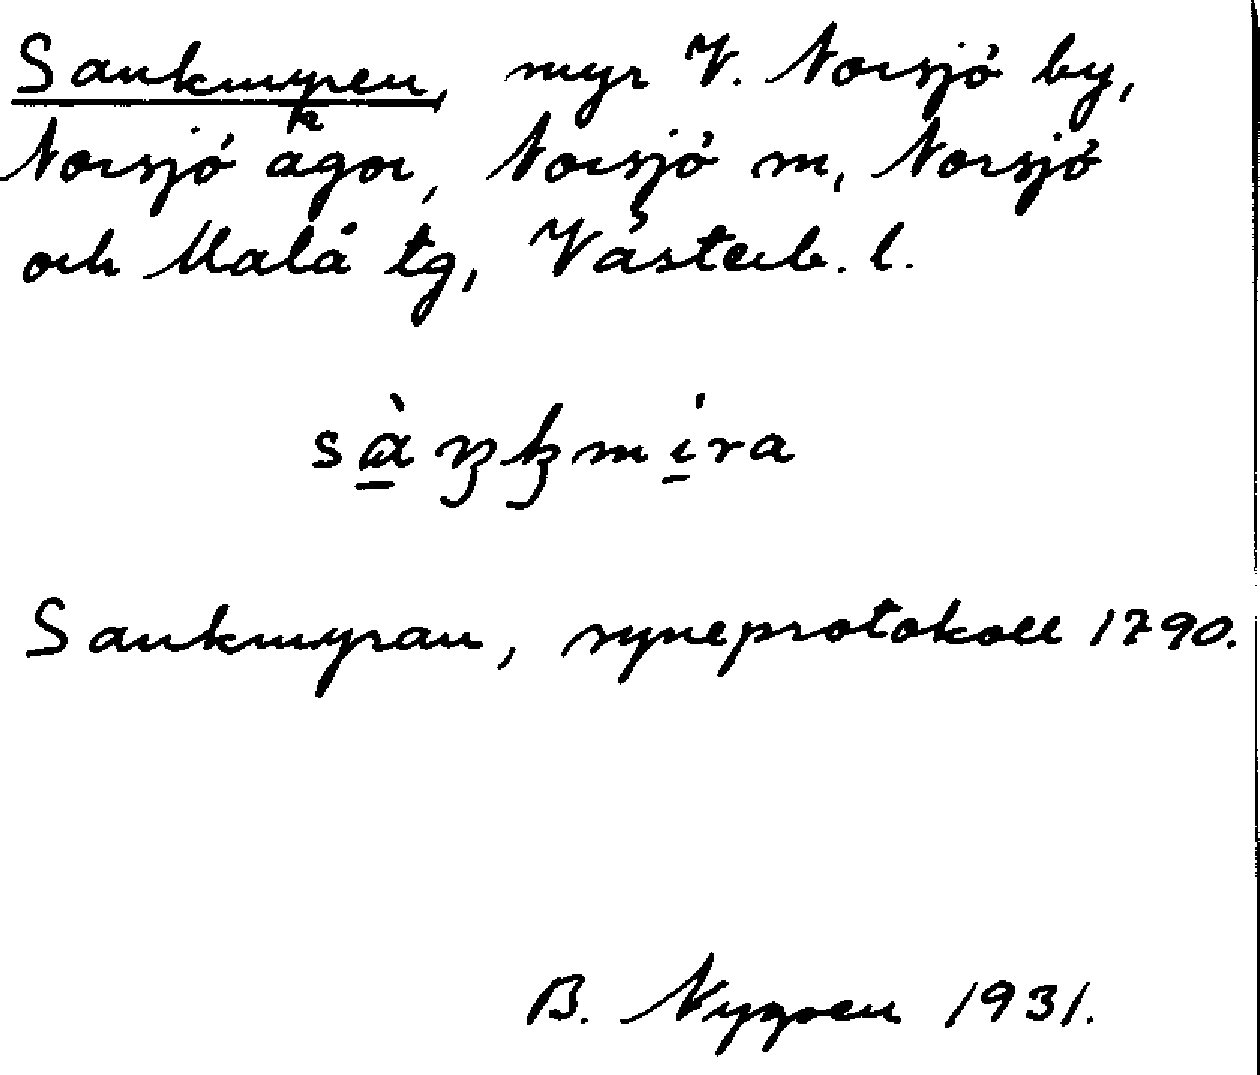 Sankmyren, myr V. Norsjö by,
Norsjö kågor, Norsjö sn, Norsjö
och Malå tg, Västerb. l.
Sankmyran, syneprotokoll 1790.
B. Nygren 1931.